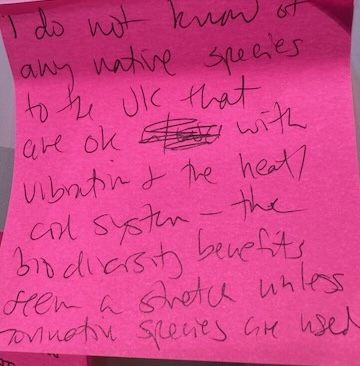 I do not know of
any native species
to the UK that
are ok with
vibration & the heat/
cool system – the
biodiversity benefits
seem a stretch unless
species are used